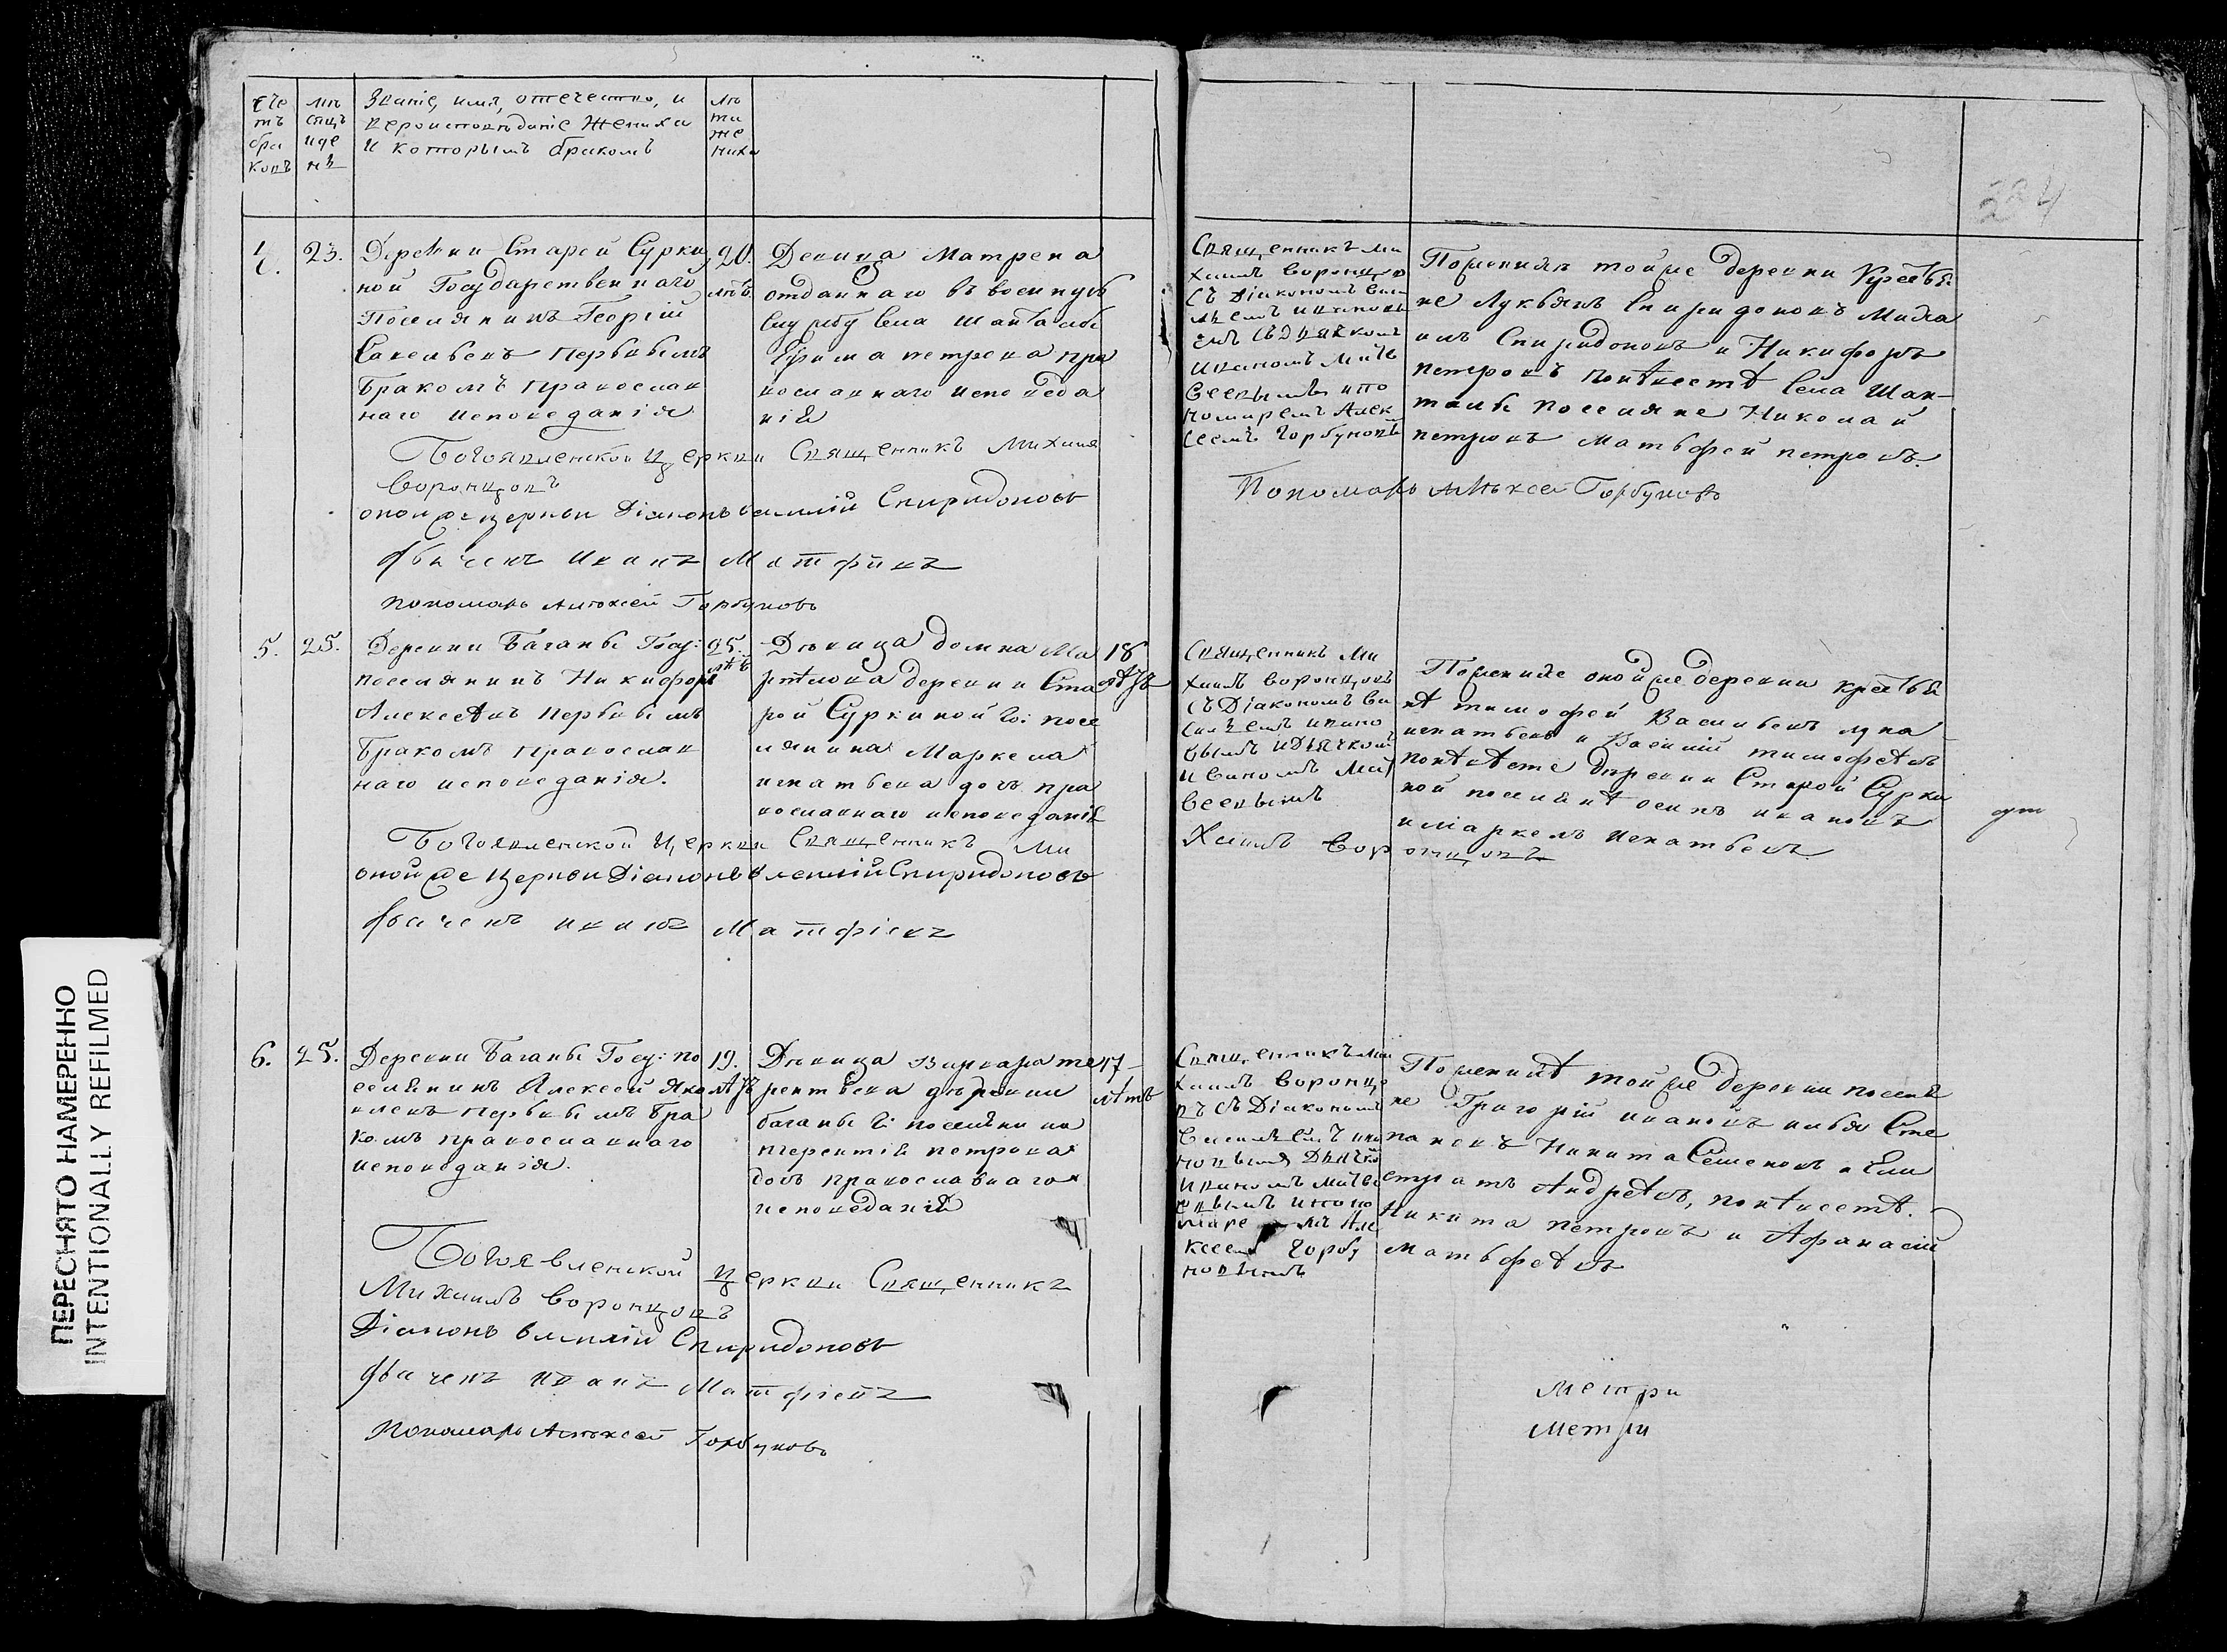 Сче
тъ
бра
ковъ
мѣ
сяцъ
и де
нь
Званіе, имя, отечество, и
вероисповѣданіе Жениха
и которымъ бракомъ
лѣ
та
же
ниха
234
23.
Деревни Старой Сурки
ной Государственнаго
Поселянинъ Георгій
Савельевъ первымъ
бракомъ православ
наго исповеданія
20.
лѣтъ
Девица Матрена
отданнаго въ военную
службу села Шанталы
Ефима петрова пра
вославнаго исповеда
нія
Священникъ Ми
хаилъ Воронцов
съ Діакономъ Васи
Иваномъ Матв
номаремъ Алек
сеемъ Горбуновы
Поженихѣ тойже деревни Крестья
не Лукьянъ Спиридоновъ Миха
илъ Спиридоновъ и Никифоръ
петровъ поневестѣ села Шан
талы поселяне Николай
петровъ Матвфей петровъ.
Богоявленской Церкви Священникъ Михаил
Воронцовъ
оной же церкви Діаконъ Василій Спиридоновъ
дьячекъ Иванъ Матфѣевъ
пономарь Алексей Горбуновъ
Пономарь Алексей Горбуновъ
5.
25.
Деревни Баганы Госу:
поселянинъ Никифоръ
Алексеевъ первымъ
бракомъ православ
наго исповеданія.
25.
лѣтъ
Дѣвица домна Ма
ркелова деревни Ста
рой Суркиной Го: посе
лянина Маркела
игнатьева дочь пра
вославнаго исповеданія
18
лѣтъ
Священникъ Ми
хаилъ Воронцовъ
съ Діакономъ Ва
сильемъ ивано
вымъ и Дьячком
Иваномъ Мат
веевымъ
Поженихе оной же деревни крестья
нѣ тимофей Васильевъ лука
игнатьевъ и Василій тимофеевъ
поневесте деревни Старой Сурки
ной поселянѣ осипъ ивановъ
и маркелъ игнатьевъ
Богоявленской Церкви Священникъ Ми
хаилъ Воронцовъ
оной же Церкви Діаконъ Василій Спиридоновъ
дьячекъ иванъ Матфіевъ
6.
25.
Деревни Баганы Госу: по
селянинъ Алексей Яко
влевъ первымъ бра
комъ православнаго
исповеданія.
19.
лѣтъ
Дѣвица Варвара те
рентьева дѣревни
баганы Го: поселянина
терентія петрова
дочь православнаго
исповеданія
17
лѣтъ
Священникъ Ми
хаилъ Воронцо
въ съ Діакономъ
Васильемъ ива
новымъ Дьячко
Иваномъ Матве
евымъ и поно
маремъ Але
ксеемъ Горбу
новымъ
Поженихѣ тойже деревни поселя
не Григорій ивановъ илья Сте
пановъ Никита Семеновъ и Ели
стратъ Андреевъ, поневестѣ.
Никита петровъ и Афанасій
Матвфеевъ
Богоявленской Церкви Священникъ
Михаилъ Воронцовъ
Діаконъ Василій Спиридоновъ
дьячекъ Иванъ Матфіевъ
Пономарь Алексей Горбуновъ
Метри
Метри
ПЕРЕСНЯТО НАМЕРЕННО
INTENTIONALLY REFILMED